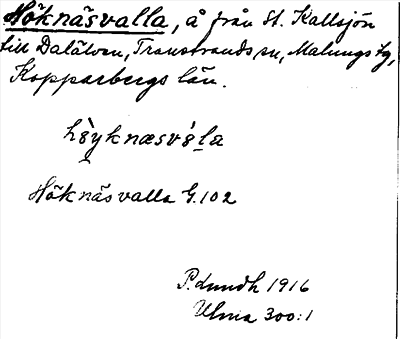 Höknäsvalla, å från St. Kallsjön
till Dalälven, Transtrands sn, Malungs tg,
Kopparbergs län.
Höknäsvalla G. 102
P. Lundh 1916
Ulma 300:1